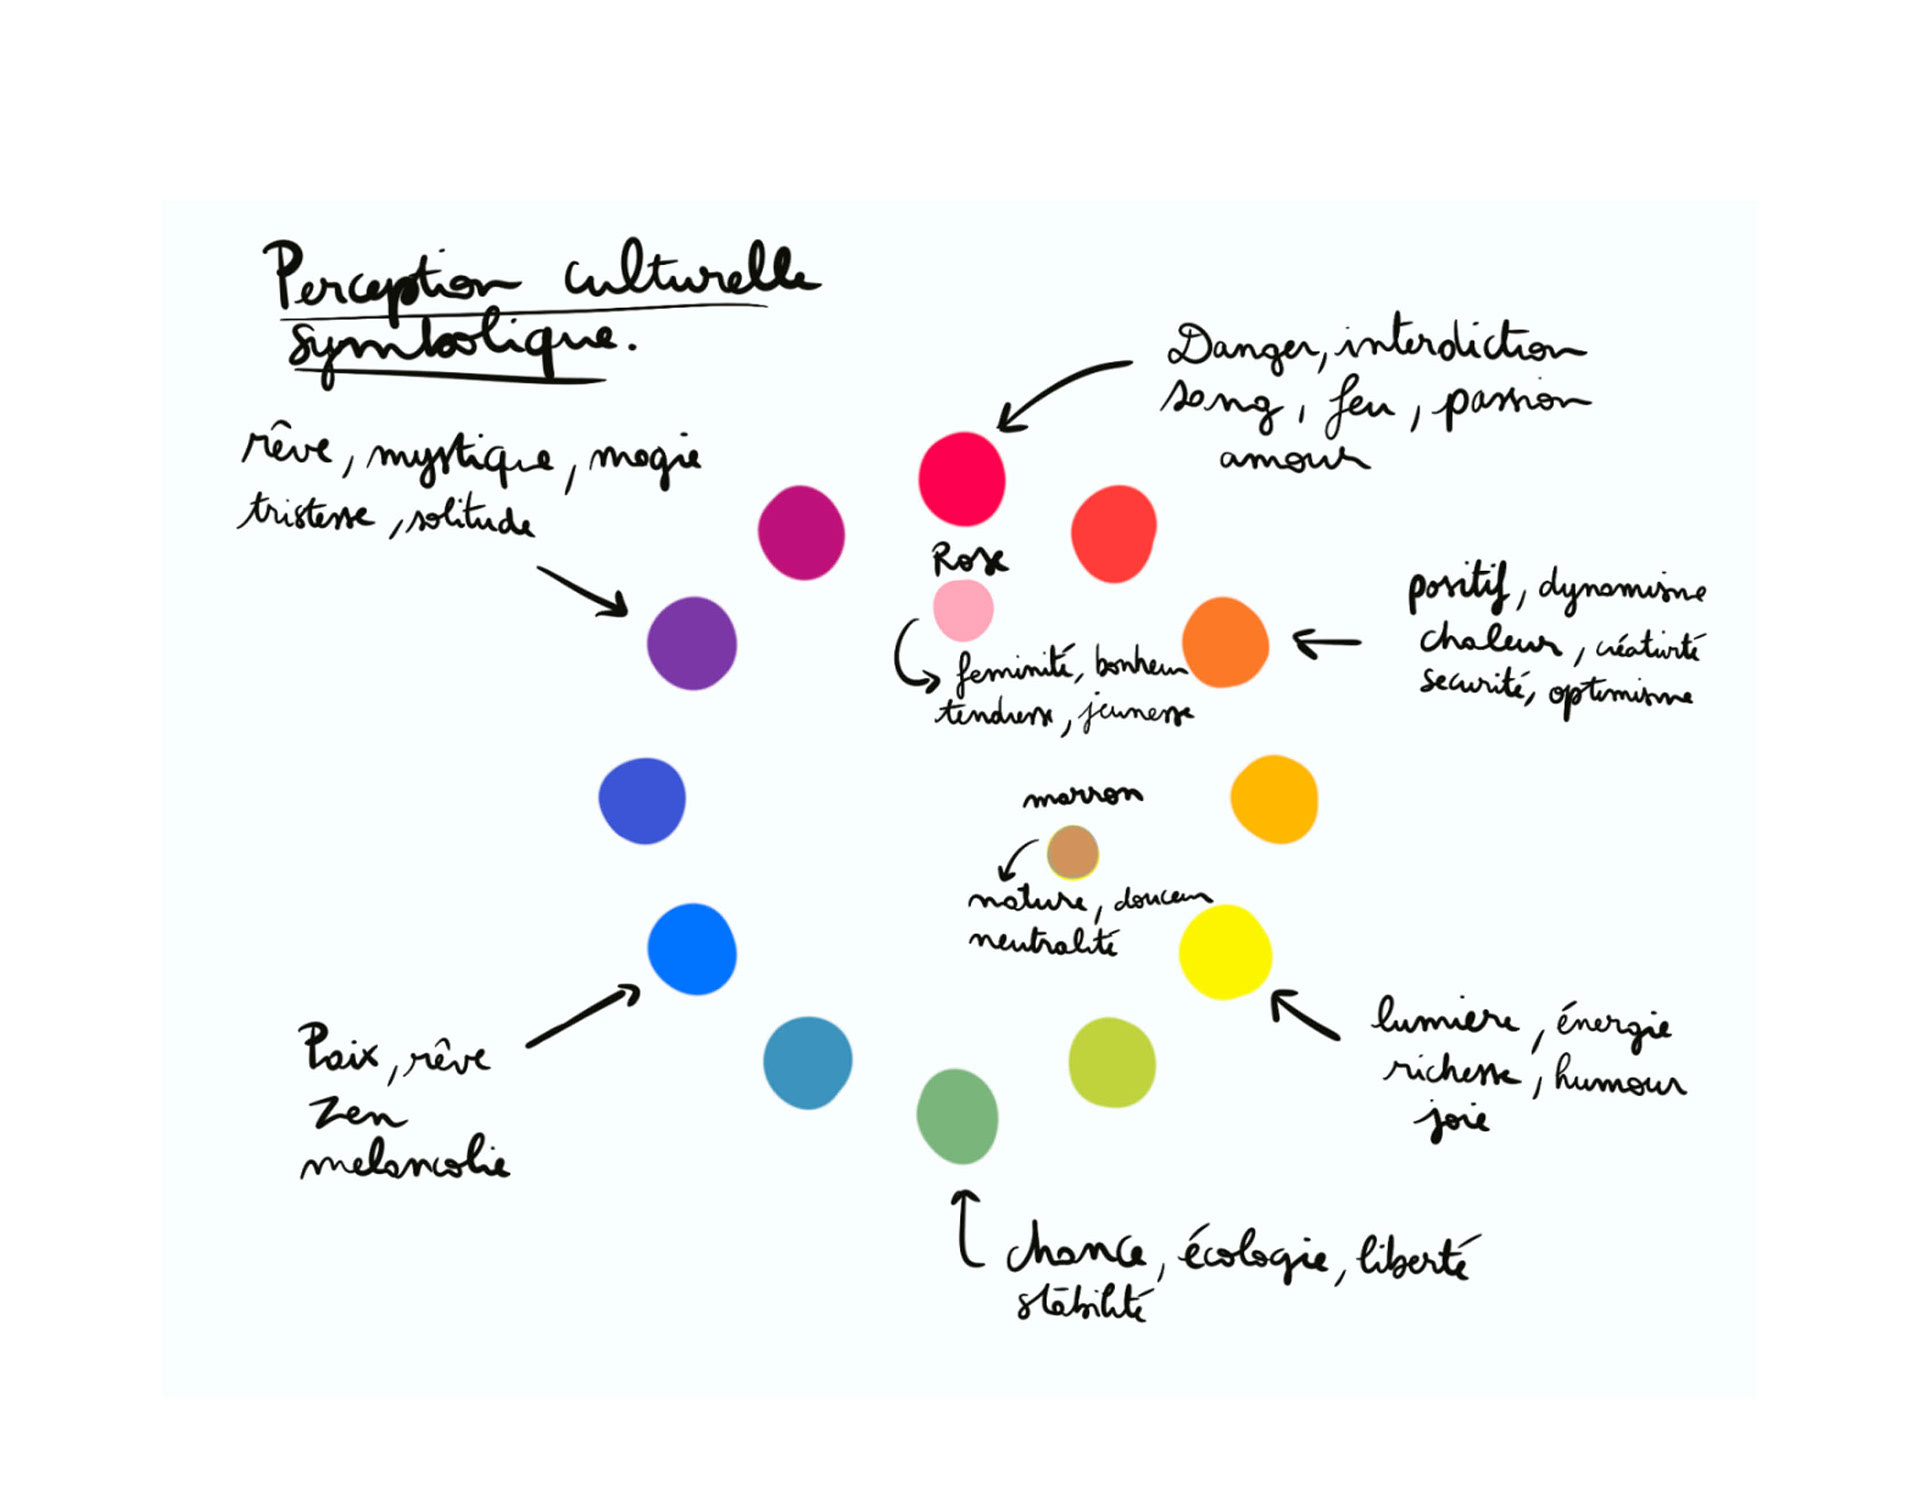 Perception culturelle
symbolique.
rêve, mystique, magie
tristesse, solitude
Danger, interdiction
sang, feu, passion
amour
Rose
feminité, bonheur
tendresse, jeunesse
positif, dynamisme
chaleur, créativité
securité, optimisme
marron
nature, douceur
neutralité
lumière, énergie
richesse, humour
joie
Paix, rêve
Zen
melancolie
chance, écologie, liberté
stabilité